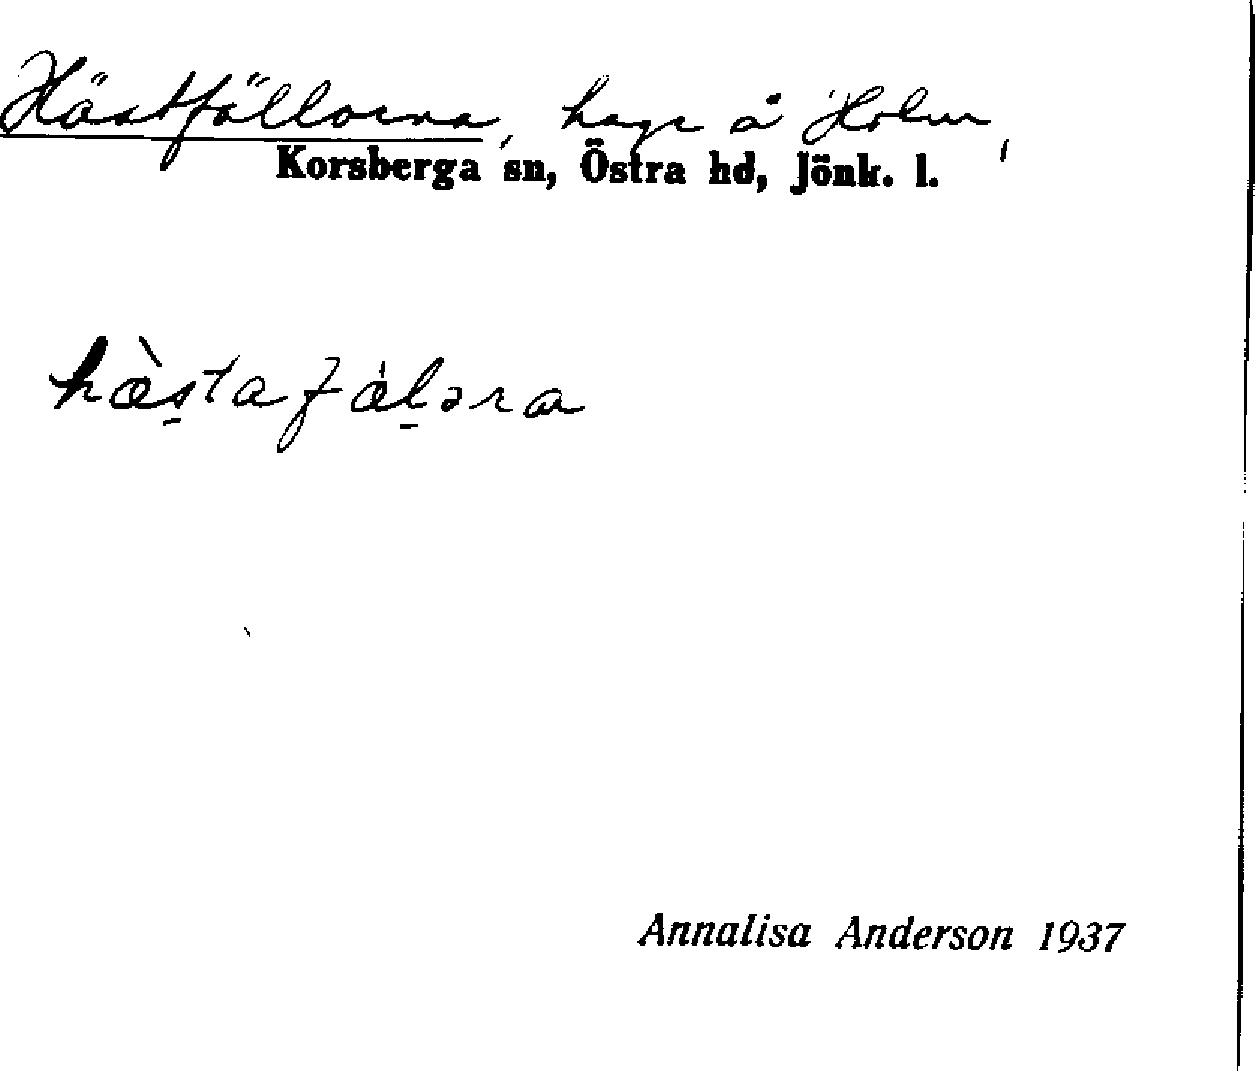 Hästfällorna, hage å Holm,
Korsberga sn, Östra hd, Jönk. l.
hæ̀s̠tafæ̍l̠ɔra
Annalisa Anderson 1937